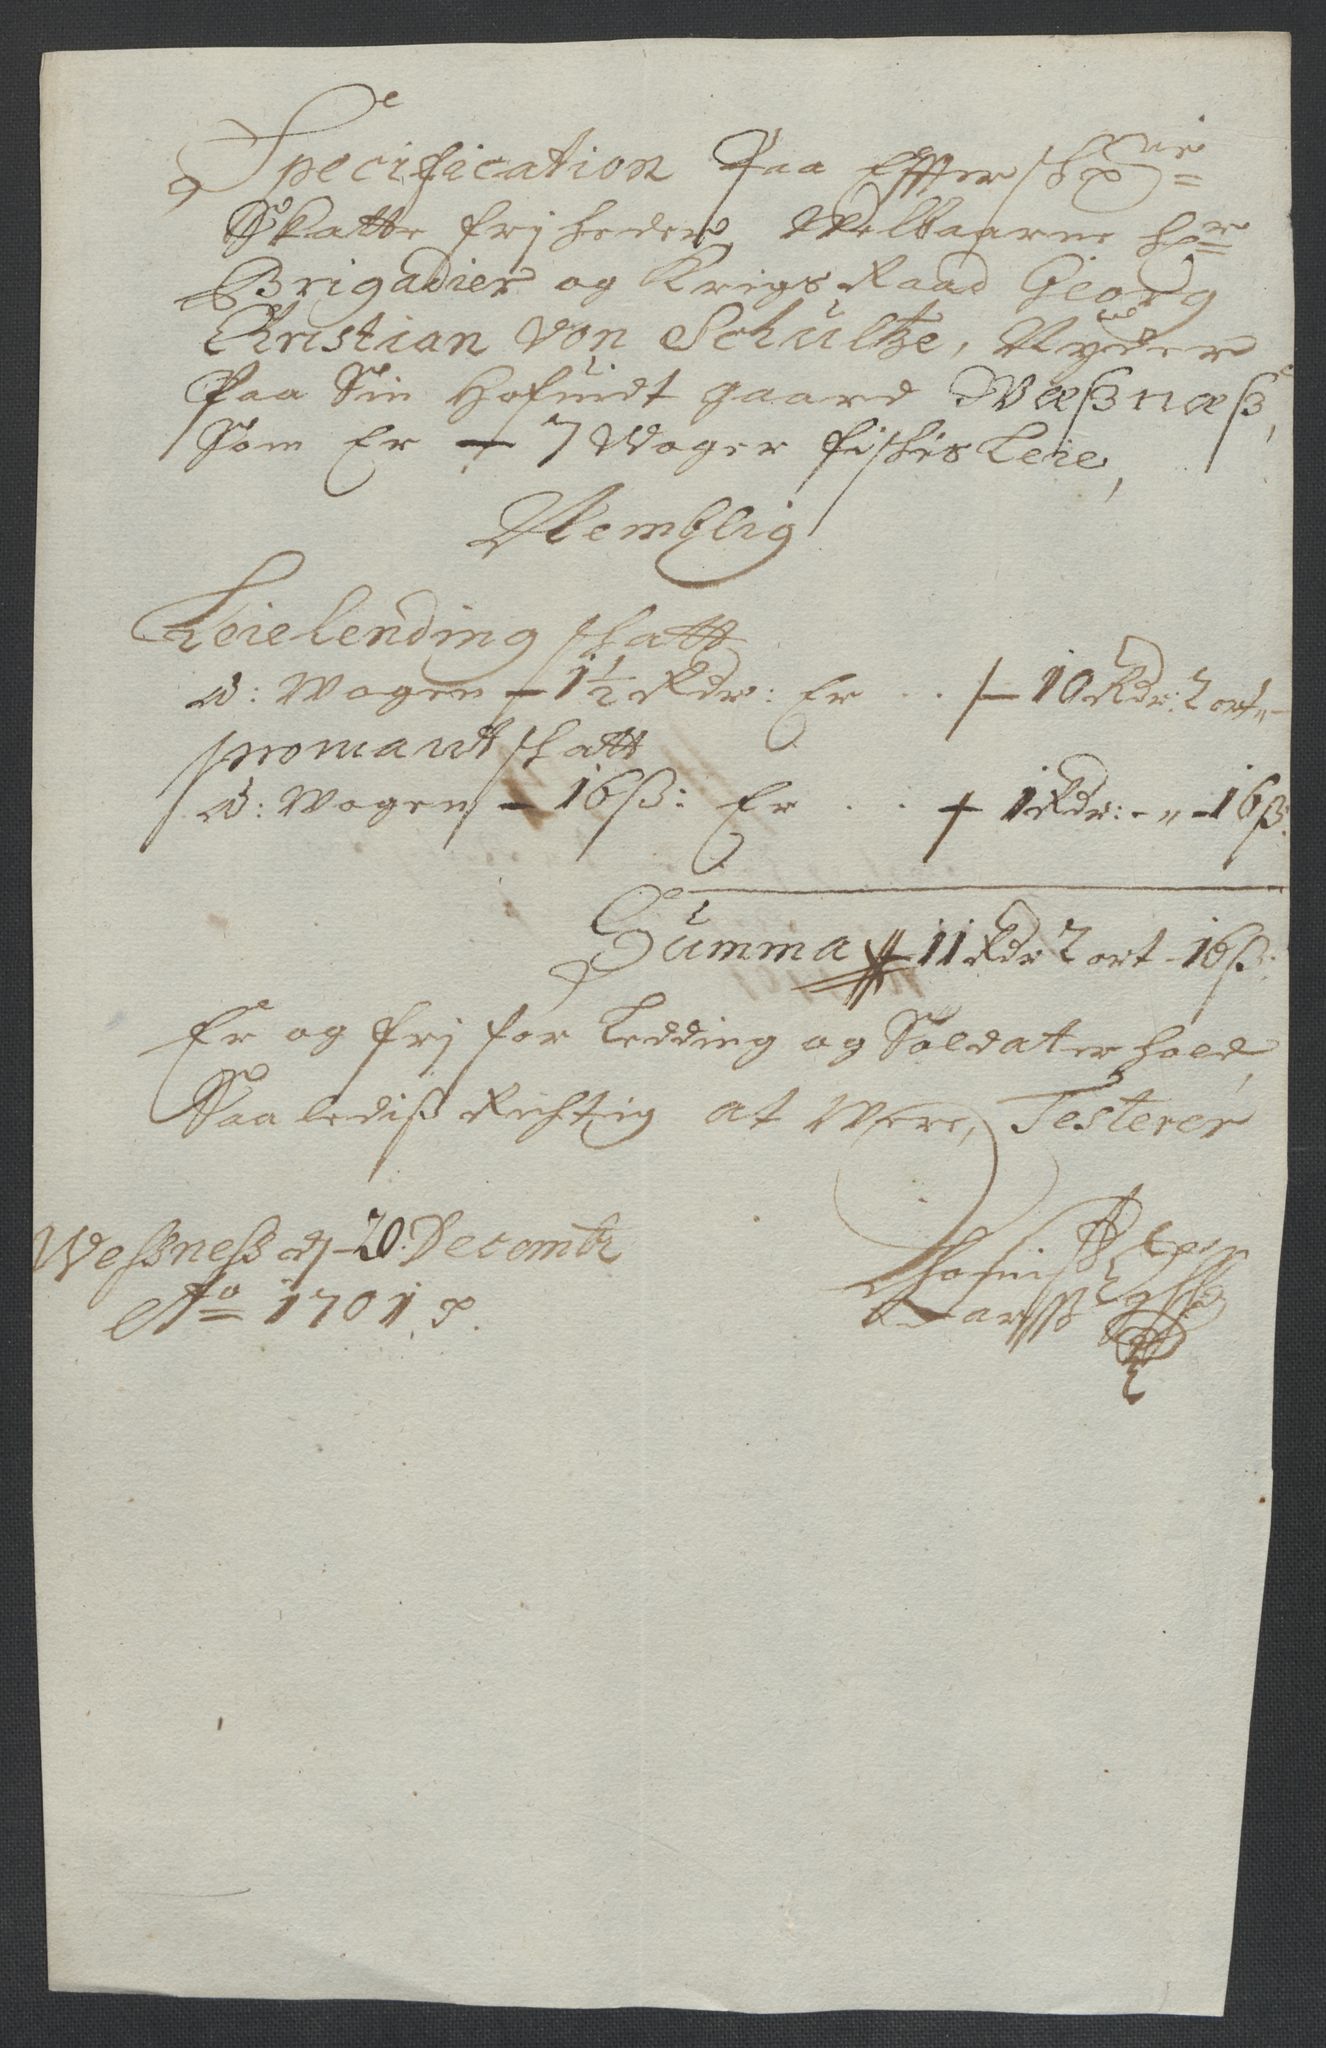 Specification Paa Effterschr:ne
Skatte frj heder, Welbaarne her
Brigadier og Krigs Raad Georg
Christian Von Schultze, Nyder
Paa Sin Hofuidt gaard Wæßnæß,
Som Er — 7 Woger fischis Leie,
Nemblig
Leielending schatt
a: Wogen — 1½ Rdr: Er . . /— 10 Rdr: 2 ort „ —
promant schatt
a: Wogen — 16ß: Er . . . + 1 Rdr: - „ - 16ß:
Summa 11 Rdr 2 ort - 16ß:
Er og frj for Ledding og Soldater hold,
Saalediß Richtig at Were, Testerer
Weßneß dj 20. Decembr
Ao 1701